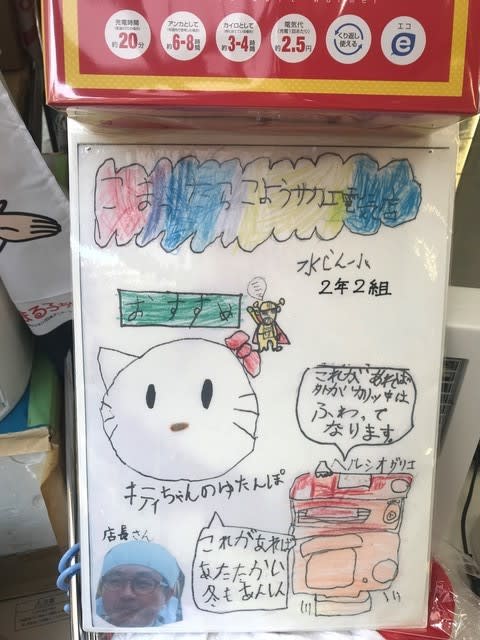 充電時間
約20分
アンカとして
6-8時間
カイロとして
3-4時間
電気代
約2.5円
くり返し
使える
エコ
e
こまったらこようサカエ電気店
水じん小
2年2組
おすすめ
これがあれば
外がカリッ中は
ふわって
なります。
ヘルシオグリエ
キティちゃんのゆたんぽ
店長さん
これがあれば
あたたかい
冬もあんしん